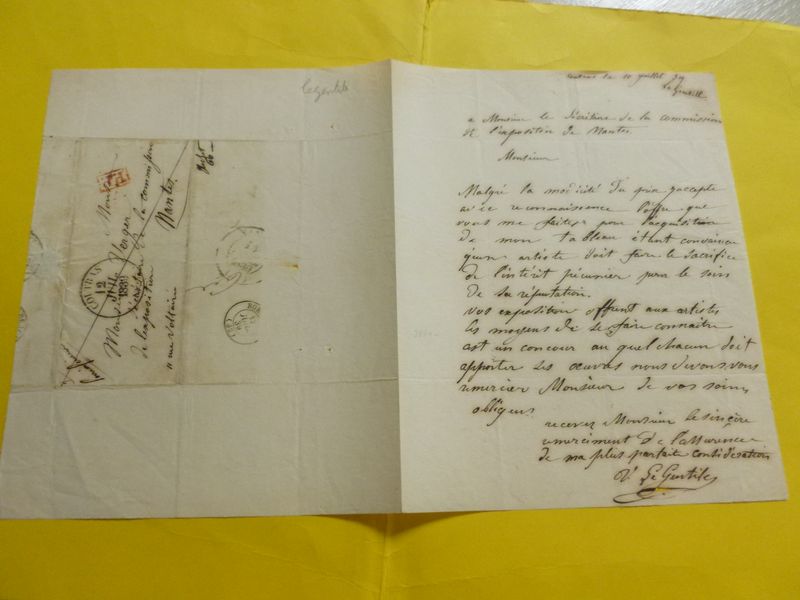 Legentile
Monsieur
Monsieur Verger
Secrétaire de la commission
de l'exposition
11 rue Voltaire
Nantes
P.P.
COUTRAS
12
JUIL.
1839
le 10 juillet 39
Le Gentil
a Monsieur le Sécrétaire de la commission
de l'exposition de Nantes.
Monsieur
Malgré la modicité du prix j'accepte
avec reconnaissance l'offre que
vous me faites pour l'acquisition
de mon tableau étant convaincu
qu'un artiste doit faire le sacrifice
de l'intérêt pécunier pour le soin
de sa réputation.
vos exposition offrent aux artistes
les moyens de se faire connaître
est un concour au quel chacun doit
apporter ses œuvres nous devons vous
remercier Monsieur de vos soins
obligens
recevez Monsieur le sincère
remerciment de l'assurence
de ma plus parfaite considération
V. Le Gentile